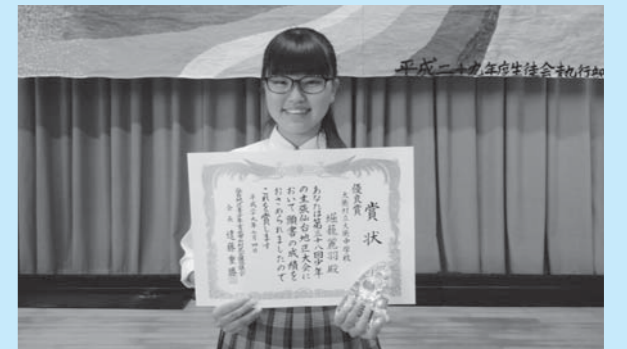 平成二十九年度生徒会執行部
賞状
優良賞
大衡村立大衡中学校
堀籠麗羽殿
あなたは第三十八回少年
の主張仙台地区大会に
おいて頭書の成績を
おさめられましたので
これを賞します
平成二十九年七月四日
会長 遠藤重勝